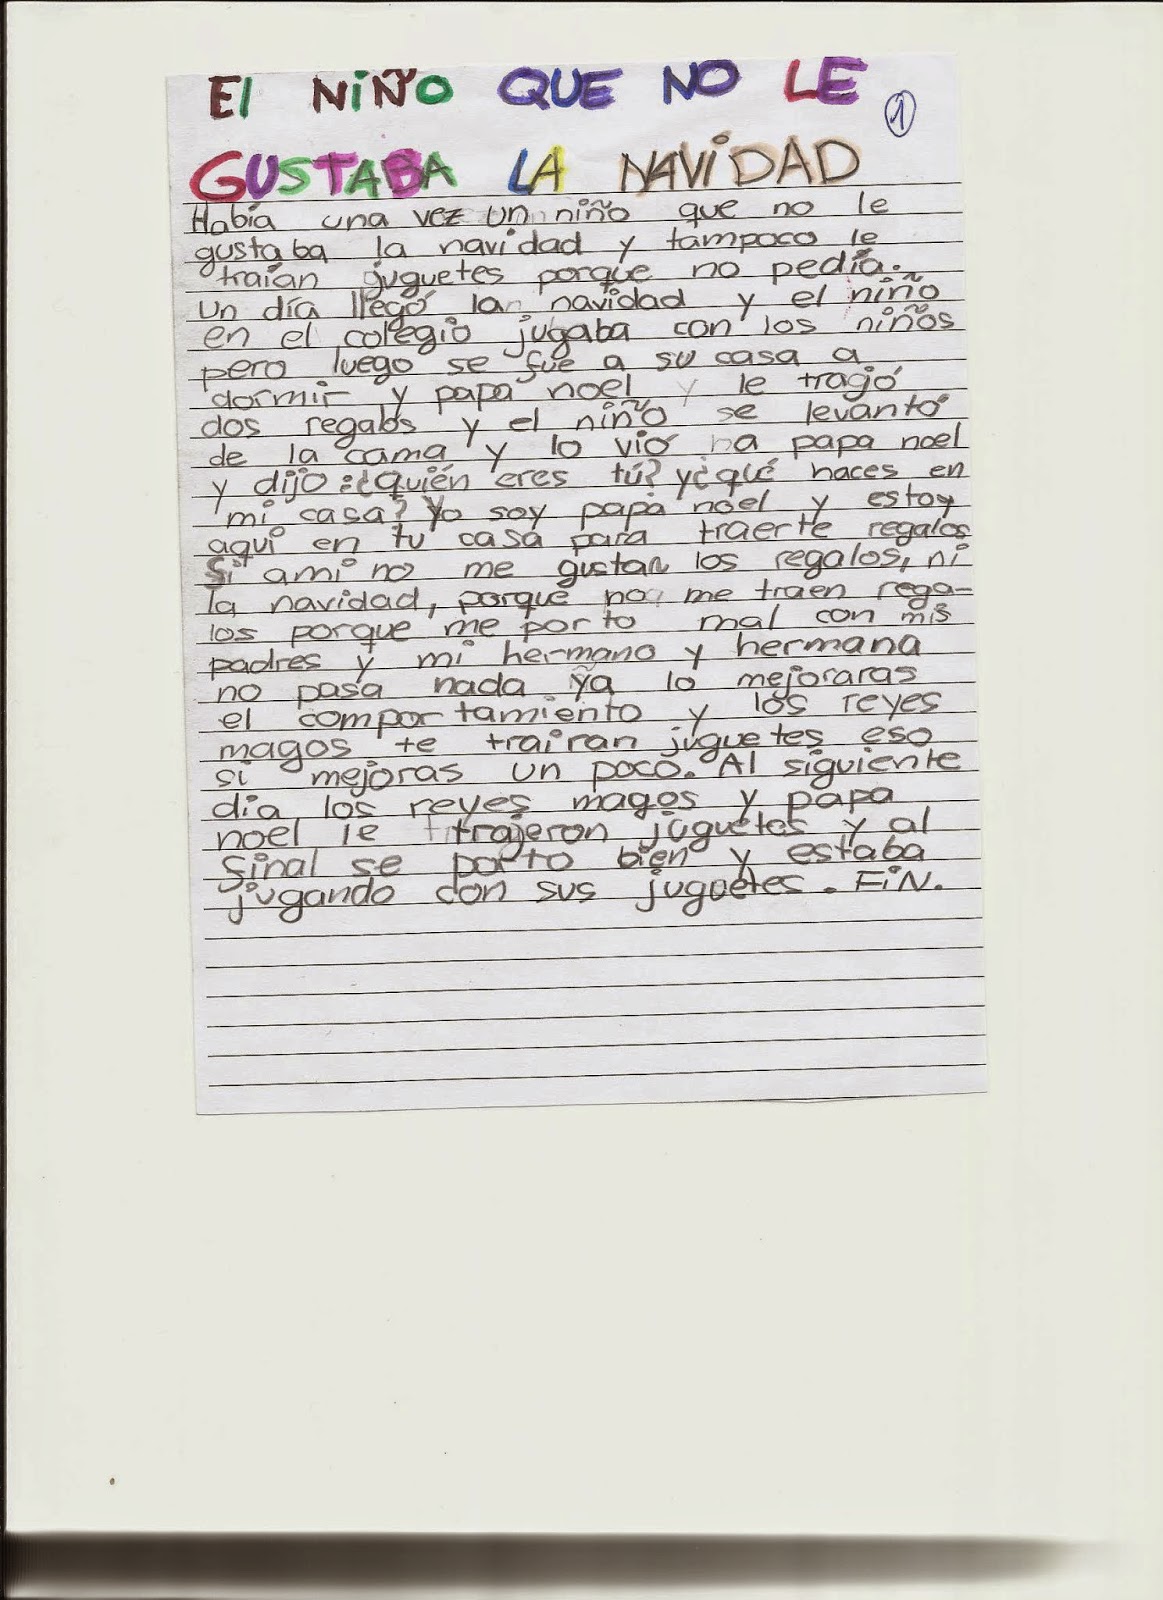 El NiÑO QUE NO LE
1
GUSTABA LA NAVIDAD
Había una vez un niño que no le
gustaba la navidad y tampoco le
traían juguetes porque no pedía.
un día llegó la navidad y el niño
en el colegio jugaba con los niños
pero luego se fue a su casa a
dormir y papá noel y le tragó
dos regalos y el niño se levantó
de la cama y lo vió ha papa noel
y dijo:¿quién eres tú? y¿qué haces en
mi casa? Yo soy papá noel y estoy
aquí en tu casa para traerte regalos
Si ami no me gustan los regalos, ni
la navidad, porque no me traen rega-
los porque me porto mal con mis
padres y mi hermano y hermana
no pasa nada ya lo mejoraras
el comportamiento y los reyes
magos te trairan juguetes eso
si mejoras un poco. Al siguiente
día los reyes magos y papa
noel le trajeron juguetes y al
Sinal se porto bien y estaba
jugando con sus juguetes. FiN.